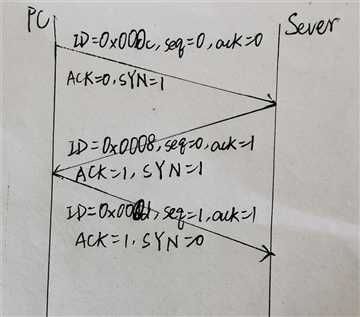 PC
Sever
ID=0x000c, seq=0, ack=0
ACK=0, SYN=1
ID=0x0008, seq=0, ack=1
ACK=1, SYN=1
ID=0x000d, seq=1, ack=1
ACK=1, SYN=0